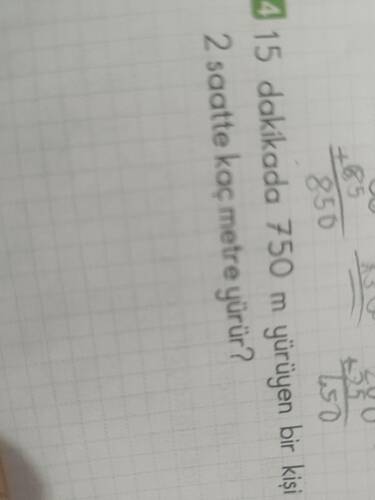 4 15 dakikada 750 m yürüyen bir kişi
2 saatte kaç metre yürür?
+85
850